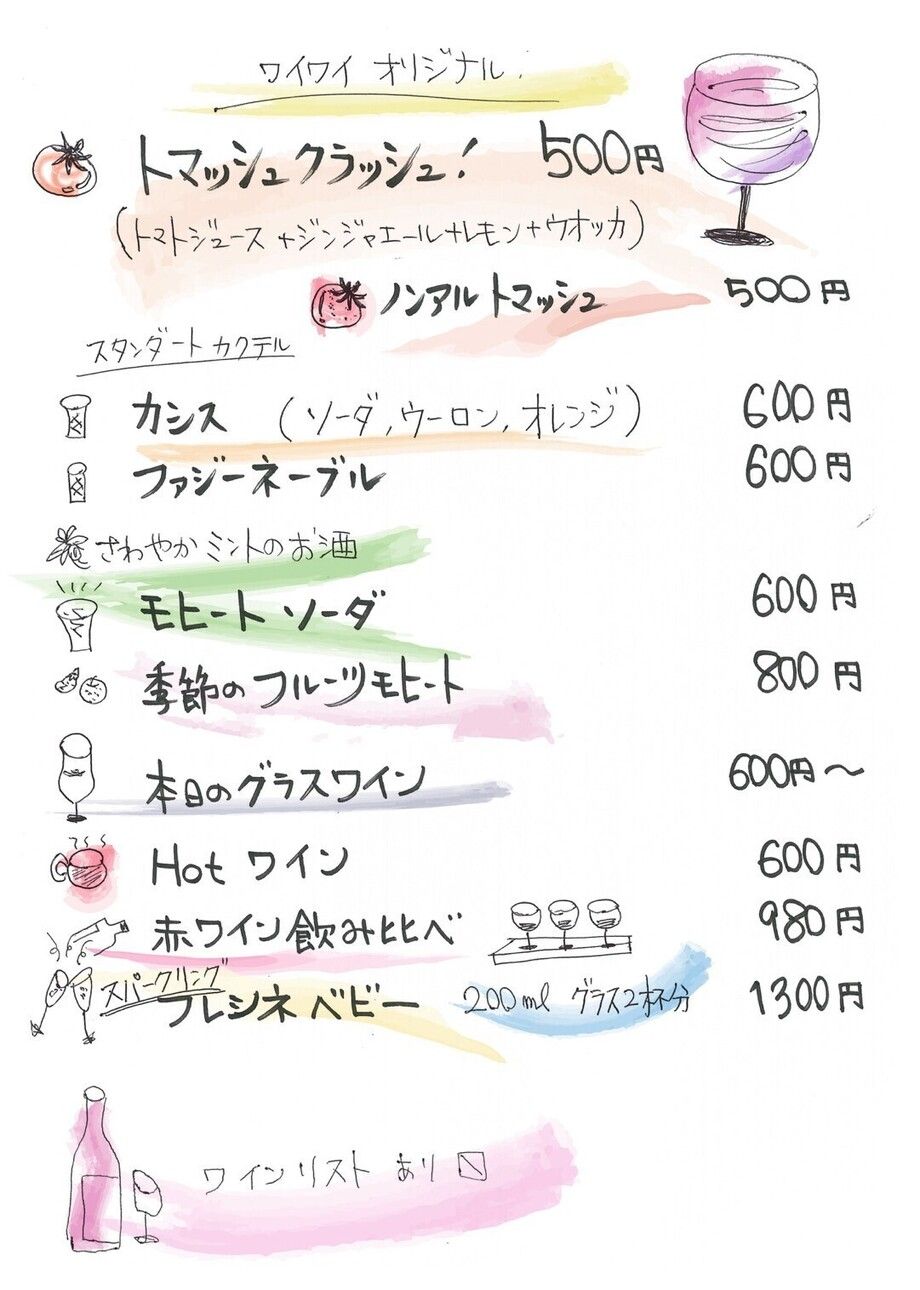 ワイワイ オリジナル.
トマッシュクラッシュ! 500円
(トマトジュース+ジンジャエール+レモン+ウオッカ)
ノンアル トマッシュ 500円
スタンダート カクテル
カシス (ソーダ,ウーロン,オレンジ) 600円
ファジーネーブル 600円
さわやか ミントのお酒
モヒート ソーダ 600円
季節の フルーツモヒート 800円
本日のグラスワイン 600円〜
Hot ワイン 600円
赤ワイン 飲みヒヒべ 980円
スパークリング
フレシネ ベビー 200ml グラス2杯分 1300円
ワインリスト あり